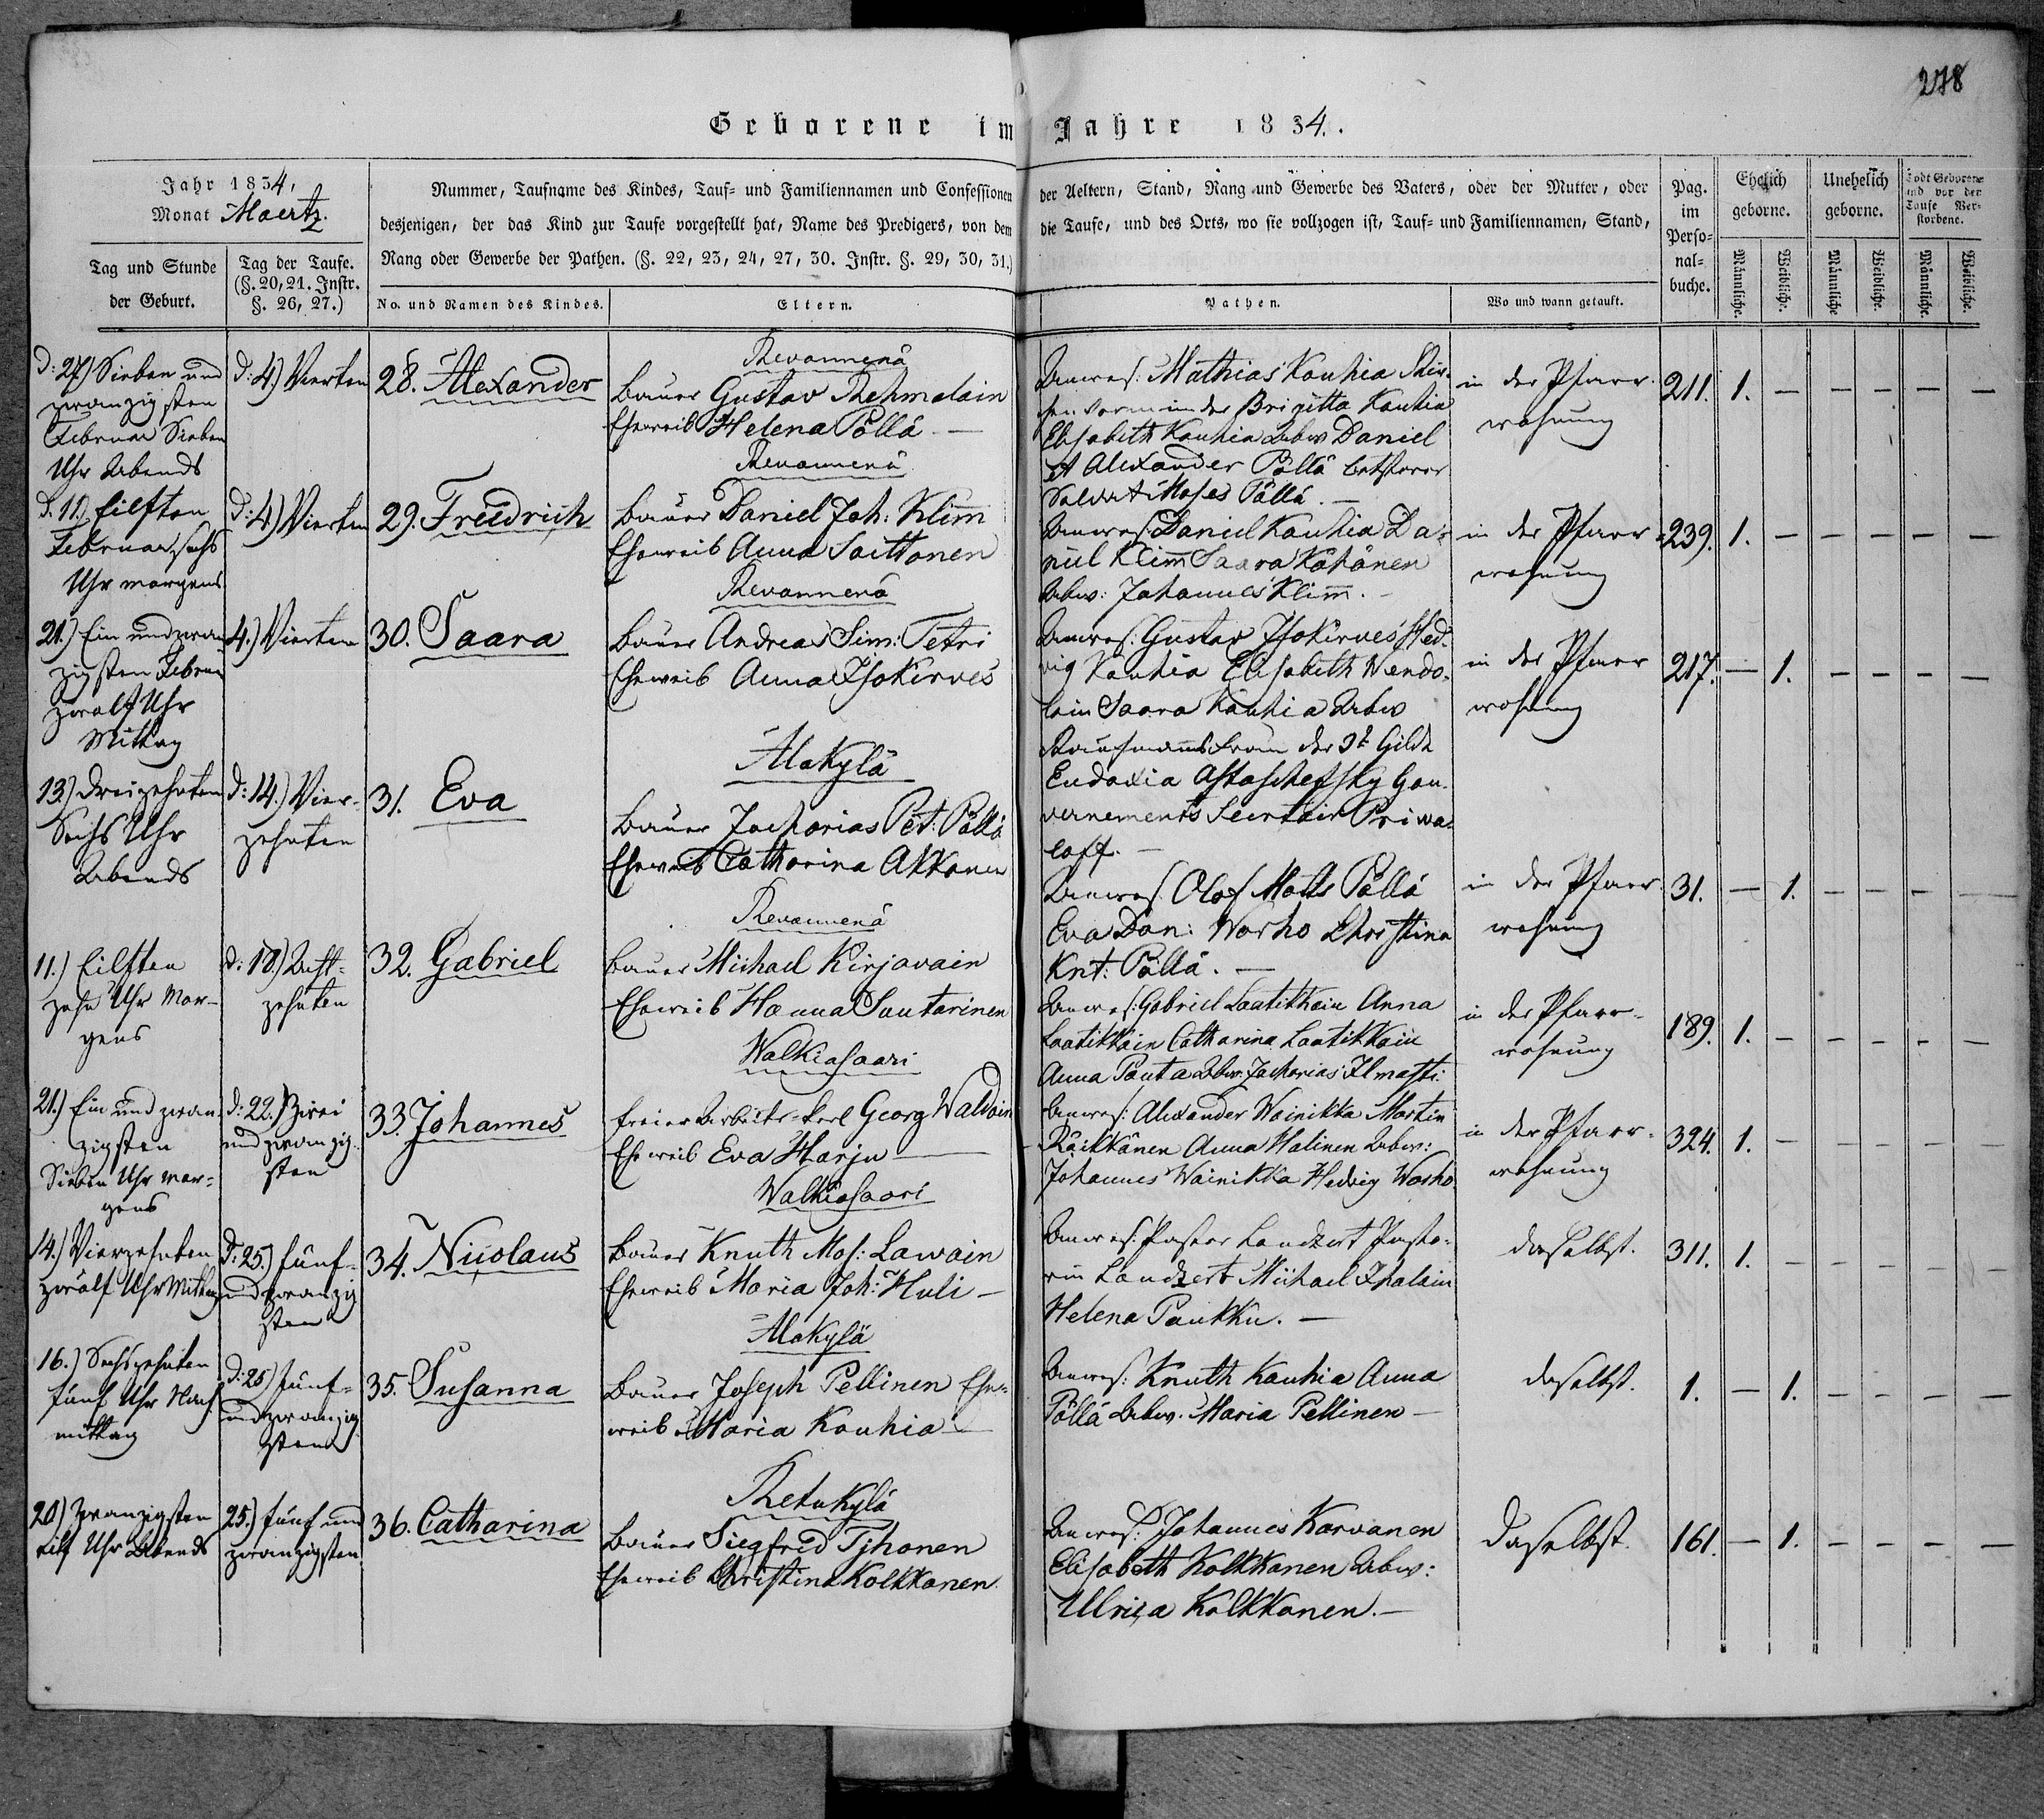 278
Geborene im Jahre 1834.
Jahr 1834,
Monat Maertz.
Tag und Stunde
der Geburt.
Tag der Taufe.
(§. 20, 21. Instr.
§. 26, 27.)
Nummer, Taufname des Kindes, Tauf- und Familiennamen und Confessionen der Aeltern, Stand, Rang und Gewerbe des Vaters, oder der Mutter, oder
desjenigen, der das Kind zur Taufe vorgestellt hat, Name des Predigers, von dem die Taufe, und des Orts, wo sie vollzogen ist, Tauf- und Familiennamen, Stand,
Rang oder Gewerbe der Pathen. (§. 22, 23, 24, 27, 30. Instr. §. 29, 30, 31.)
No. und Namen des Kindes.
Eltern.
Pathen.
Wo und wann getauft.
Pag.
im
Perso-
nal-
buche.
Ehelich
geborne.
Unehelich
geborne.
Todt Geborene
und vor der
Taufe Ver-
storbene.
Männliche.
Weibliche.
Männliche
Weibliche.
Männliche.
Weibliche.
d: 27.) Sieben und
zwanzigsten
Februar Sieben
Uhr Abends
d: 4.) Vierten
28. Alexander
Rewannenä
Bauer Gustav Rehmalain
Eheweib Helena Pöllä —
Mathias Kauhia
Brigitta Kauhia
Elisabeth Kauhia Abw Daniel
et Alexander Pöllä
Moses Pöllä. —
in der Pfarr-
wohnung
211. 1. — — — — —
d. 11.) Eilften
Februar, sechs
Uhr morgens
d: 4.) Vierten
29. Friedrich
Rewannenä
Bauer Daniel Joh: Klim̄
Eheweib Anna Saittonen
Anwes: Daniel Kauhia Da-
niel Klim̄ Saara Kähänen
Abw: Johannes Klim̄. —
in der Pfarr-
wohnung
239. 1. — — — — —
21.) Ein und zwan
zigsten Februar
zwölf Uhr
Mittag
4.) Vierten
30. Saara
Rewannenä
Bauer Andreas Sim: Petri
Eheweib Anna Isokirves
Anwes: Gustav Isokirves Hed-
vig Kauhia Elisabeth Wendo-
lain Saara Kauhia Abw
Kaufmannsfrau der 3t Gilde
Eudoxia Astaschefsky Gou-
vernements Secretair Priwa-
loff. —
in der Pfarr
wohnung
217. — 1. — — — —
13.) dreizehnten
Sechs Uhr
Abends
d: 14.) Vier-
zehnten
31. Eva
Alakylä
Bauer Zacharias Pet: Pöllä
Eheweib Catharina Akkanen
Anwes. Olof Matts Pöllä
Eva Dan: Worho Christina
Knt: Pöllä. —
in der Pfarr
wohnung
31. — 1. — — — —
11.) Eilften
zehn Uhr Mor-
gens
d: 18.) Acht-
zehnten
32. Gabriel
Rewannenä
Bauer Michael Kirjavain
Eheweib Hanna Sautarinen
Anwes: Gabriel Laatikkain Anna
Laatikkain Catharina Laatikkain
Anna Pauta Abw: Zacharias Ilmasti
in der Pfarr-
wohnung
189. 1. — — — — —
21.) Ein und zwan
zigsten
Sieben Uhr mor-
gens
d: 22.) Zwei
und zwanzig-
sten
33. Johannes
Walkiasaari
freier Arbeits-kerl Georg Waldain
Eheweib Eva Harju —
Anwes: Alexander Wainikka Martin
Räikkänen Anna Halinen Abw:
Johannes Wainikka Hedvig Worho
in der Pfarr-
wohnung
324. 1. — — — — —
14.) Vierzehnten
zwölf Uhr Mittag
d: 25.) fünf-
und zwanzig
sten
34. Nicolaus
Walkiasaari
Bauer Knuth Mos: Lawain
Eheweib Maria Joh: Huli —
Anwes: Pastor Landzert Pasto-
rin Landzert Michael Ihalain
Helena Paukku. —
daselbst.
311. 1. — — — — —
16.) Sechszehnten
fünf Uhr Nach
mittag
d: 25) fünf-
und zwanzig
sten
35. Susanna
Alakylä
Bauer Joseph Pellinen Ehe-
weib Maria Kauhia —
Anwes: Knuth Kauhia Anna
Pöllä Abw. Maria Pellinen —
daselbst.
1. — 1. — — — —
20) Zwanzigsten
eilf Uhr Abends
25.) fünf und
zwanzigsten
36. Catharina
Retukylä
Bauer Siegfred Tyhonen
Eheweib Christina Kolkkanen
Anwes: Johannes Karvanen
Elisabeth Kolkkanen Abw:
Ulrica Kolkkonen. —
daselbst.
161. — 1. — — — —